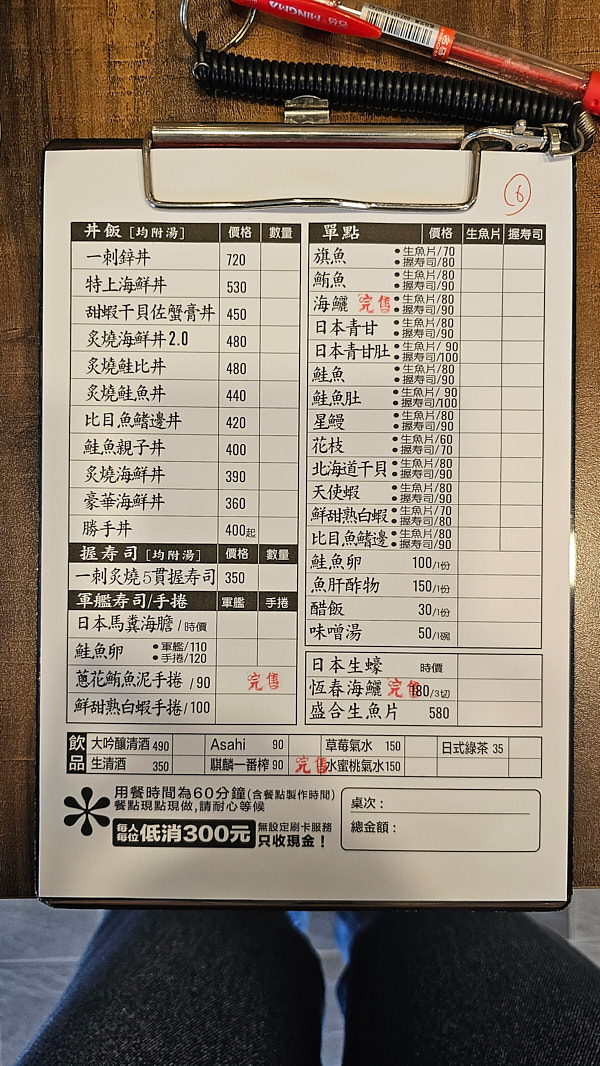 MINGMA
6
丼飯 [均附湯] 價格 數量
一刺鋅丼 720
特上海鮮丼 530
甜蝦干貝佐蟹膏丼 450
炙燒海鮮丼2.0 480
炙燒鮭比丼 480
炙燒鮭魚丼 440
比目魚鰭邊丼 420
鮭魚親子丼 400
炙燒海鮮丼 390
豪華海鮮丼 360
勝手丼 400起
握寿司 [均附湯] 價格 數量
一刺炙燒5貫握寿司 350
軍艦寿司/手捲 軍艦 手捲
日本馬糞海膽 / 時價
鮭魚卵 •軍艦/110
•手捲/120
蔥花鮪魚泥手捲 / 90 完售
鮮甜熟白蝦手捲 / 100
單點 價格 生魚片 握寿司
旗魚 •生魚片/70
•握寿司/80
鮪魚 •生魚片/80
•握寿司/90
海鱺 完售 •生魚片/80
•握寿司/90
日本青甘 •生魚片/80
•握寿司/90
日本青甘肚 •生魚片/ 90
•握寿司/100
鮭魚 •生魚片/80
•握寿司/90
鮭魚肚 •生魚片/ 90
•握寿司/100
星鰻 •生魚片/80
•握寿司/90
花枝 •生魚片/60
•握寿司/70
北海道干貝 •生魚片/80
•握寿司/90
天使蝦 •生魚片/80
•握寿司/90
鮮甜熟白蝦 •生魚片/70
•握寿司/80
比目魚鰭邊 •生魚片/80
•握寿司/90
鮭魚卵 100/1份
魚肝酢物 150/1份
醋飯 30/1份
味噌湯 50/1碗
日本生蠔 時價
恆春海鱺 完售 180/3切
盛合生魚片 580
飲品
大吟釀清酒 490 Asahi 90 草莓氣水 150 日式綠茶 35
生清酒 350 麒麟一番榨 90 完售 水蜜桃氣水 150
用餐時間為60分鐘(含餐點製作時間)
餐點現點現做,請耐心等候
每人每位 低消300元 無設定刷卡服務
只收現金!
桌次:
總金額: